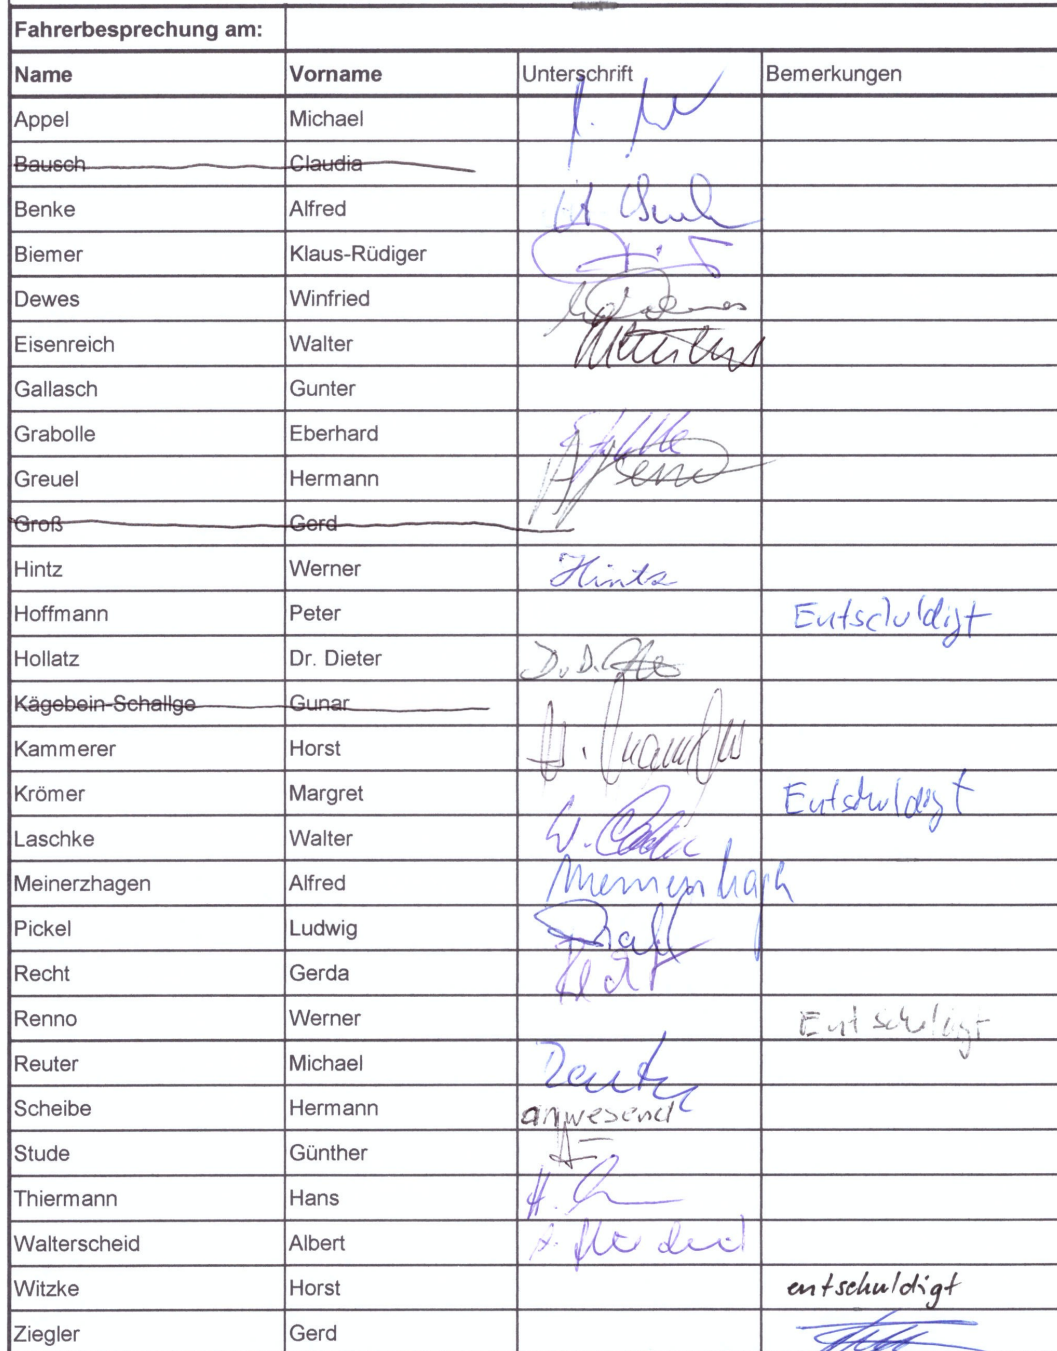 Fahrerbesprechung am:
Name Vorname Unterschrift Bemerkungen
Appel Michael
Bausch Claudia
Benke Alfred
Biemer Klaus-Rüdiger
Dewes Winfried
Eisenreich Walter
Gallasch Gunter
Grabolle Eberhard
Greuel Hermann
Groß Gerd
Hintz Werner Hintz
Hoffmann Peter Entschuldigt
Hollatz Dr. Dieter
Kägebein-Schallge Gunar
Kammerer Horst
Krömer Margret Entschuldigt
Laschke Walter
Meinerzhagen Alfred
Pickel Ludwig
Recht Gerda
Renno Werner Entschuldigt
Reuter Michael
Scheibe Hermann anwesend
Stude Günther
Thiermann Hans
Walterscheid Albert
Witzke Horst entschuldigt
Ziegler Gerd